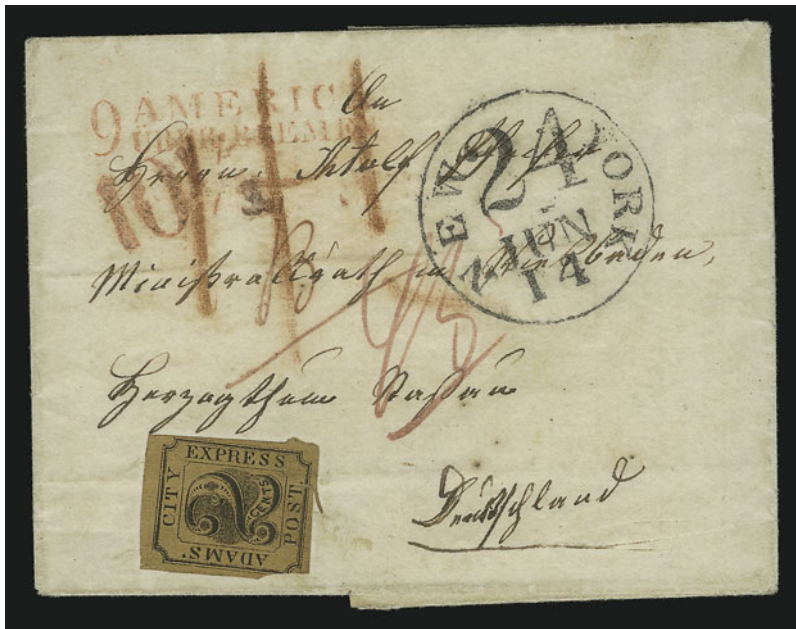 9 AMERICA
ÜBER BREMEN
10
An
Herrn Adolf
NEW YORK
24
JUN
14
Ministerialrath in Wiesbaden,
Herzogthum Nassau
Deutschland
CITY EXPRESS POST.
2 CENTS
ADAMS'